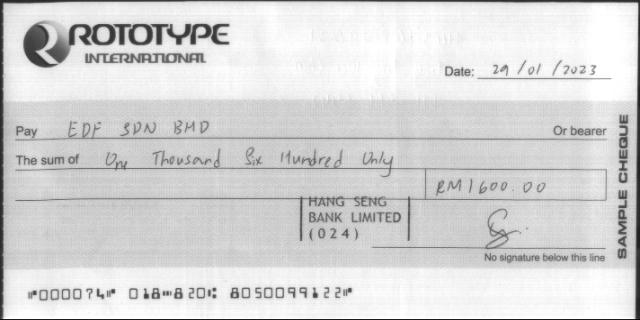 ROTOTYPE
INTERNATIONAL
Date: 29/01/2023
Pay EDF SDN BHD Or bearer
The sum of One Thousand Six Hundred Only
RM1600.00
HANG SENG
BANK LIMITED
(024)
No signature below this line
SAMPLE CHEQUE
⑈000074⑈ 018⑉820⑆ 8050099122⑈